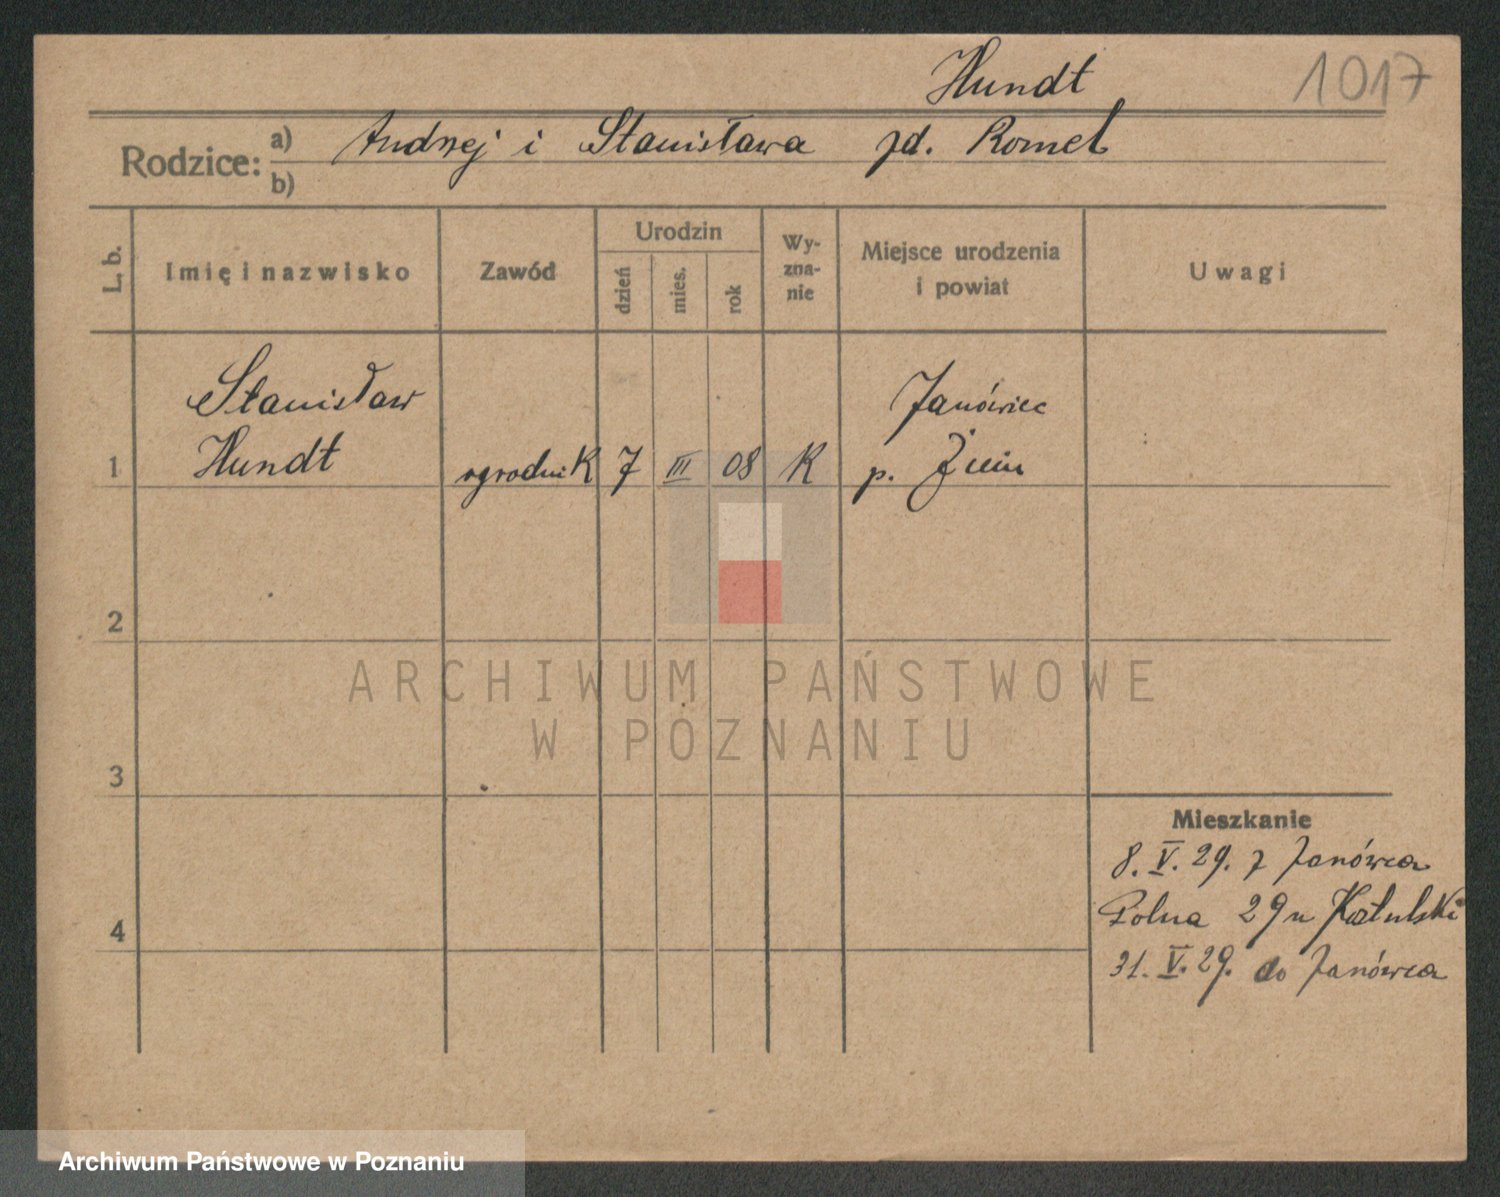 Hundt 1017
Rodzice: a) Andrzej i Stanisława zd. Romel
b)
L. b. Imię i nazwisko Zawód Urodzin dzień mies. rok Wyznanie Miejsce urodzenia i powiat Uwagi
Stanisław Janówiec
1 Hundt ogrodnik 7 III 08 K p. Żnin
2
ARCHIWUM PAŃSTWOWE
W POZNANIU
3
Mieszkanie
8. V. 29. z Janówca
4 Polna 29 u Kałulski
31. V. 29. do Janówca
Archiwum Państwowe w Poznaniu